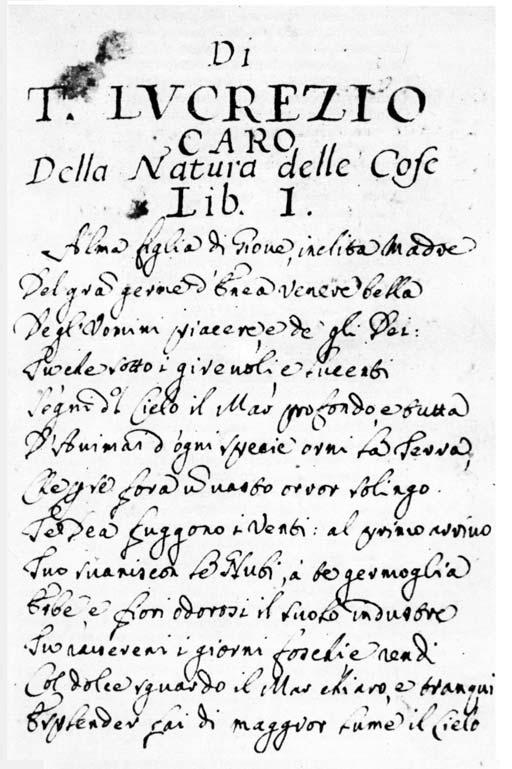 Di
T. LVCREZIO
CARO
Della Natura delle Cose
Lib. I.
Alma figlia di Giove, inclita Madre
Del gra͂ germe d'Enea Venere bella
Degl'Vomini piacere, e de gli Dei:
Tu che sotto i girevoli, e lucenti
Segni dl Cielo il Mar profondo, e tutta
D'Animai d'ogni specie orni la Terra,
Che p se fora u͂ vasto orror solingo.
Te Dea fuggono i Venti: al primo arrivo
Tuo svaniscon le Nubi, à te germoglia
Erbe e fiori odorosi il suolo industre
Tu rassereni i giorni foschi e rendi
Col dolce sguardo il Mar chiaro, e tranqui
E splender fai di maggior lume il Cielo